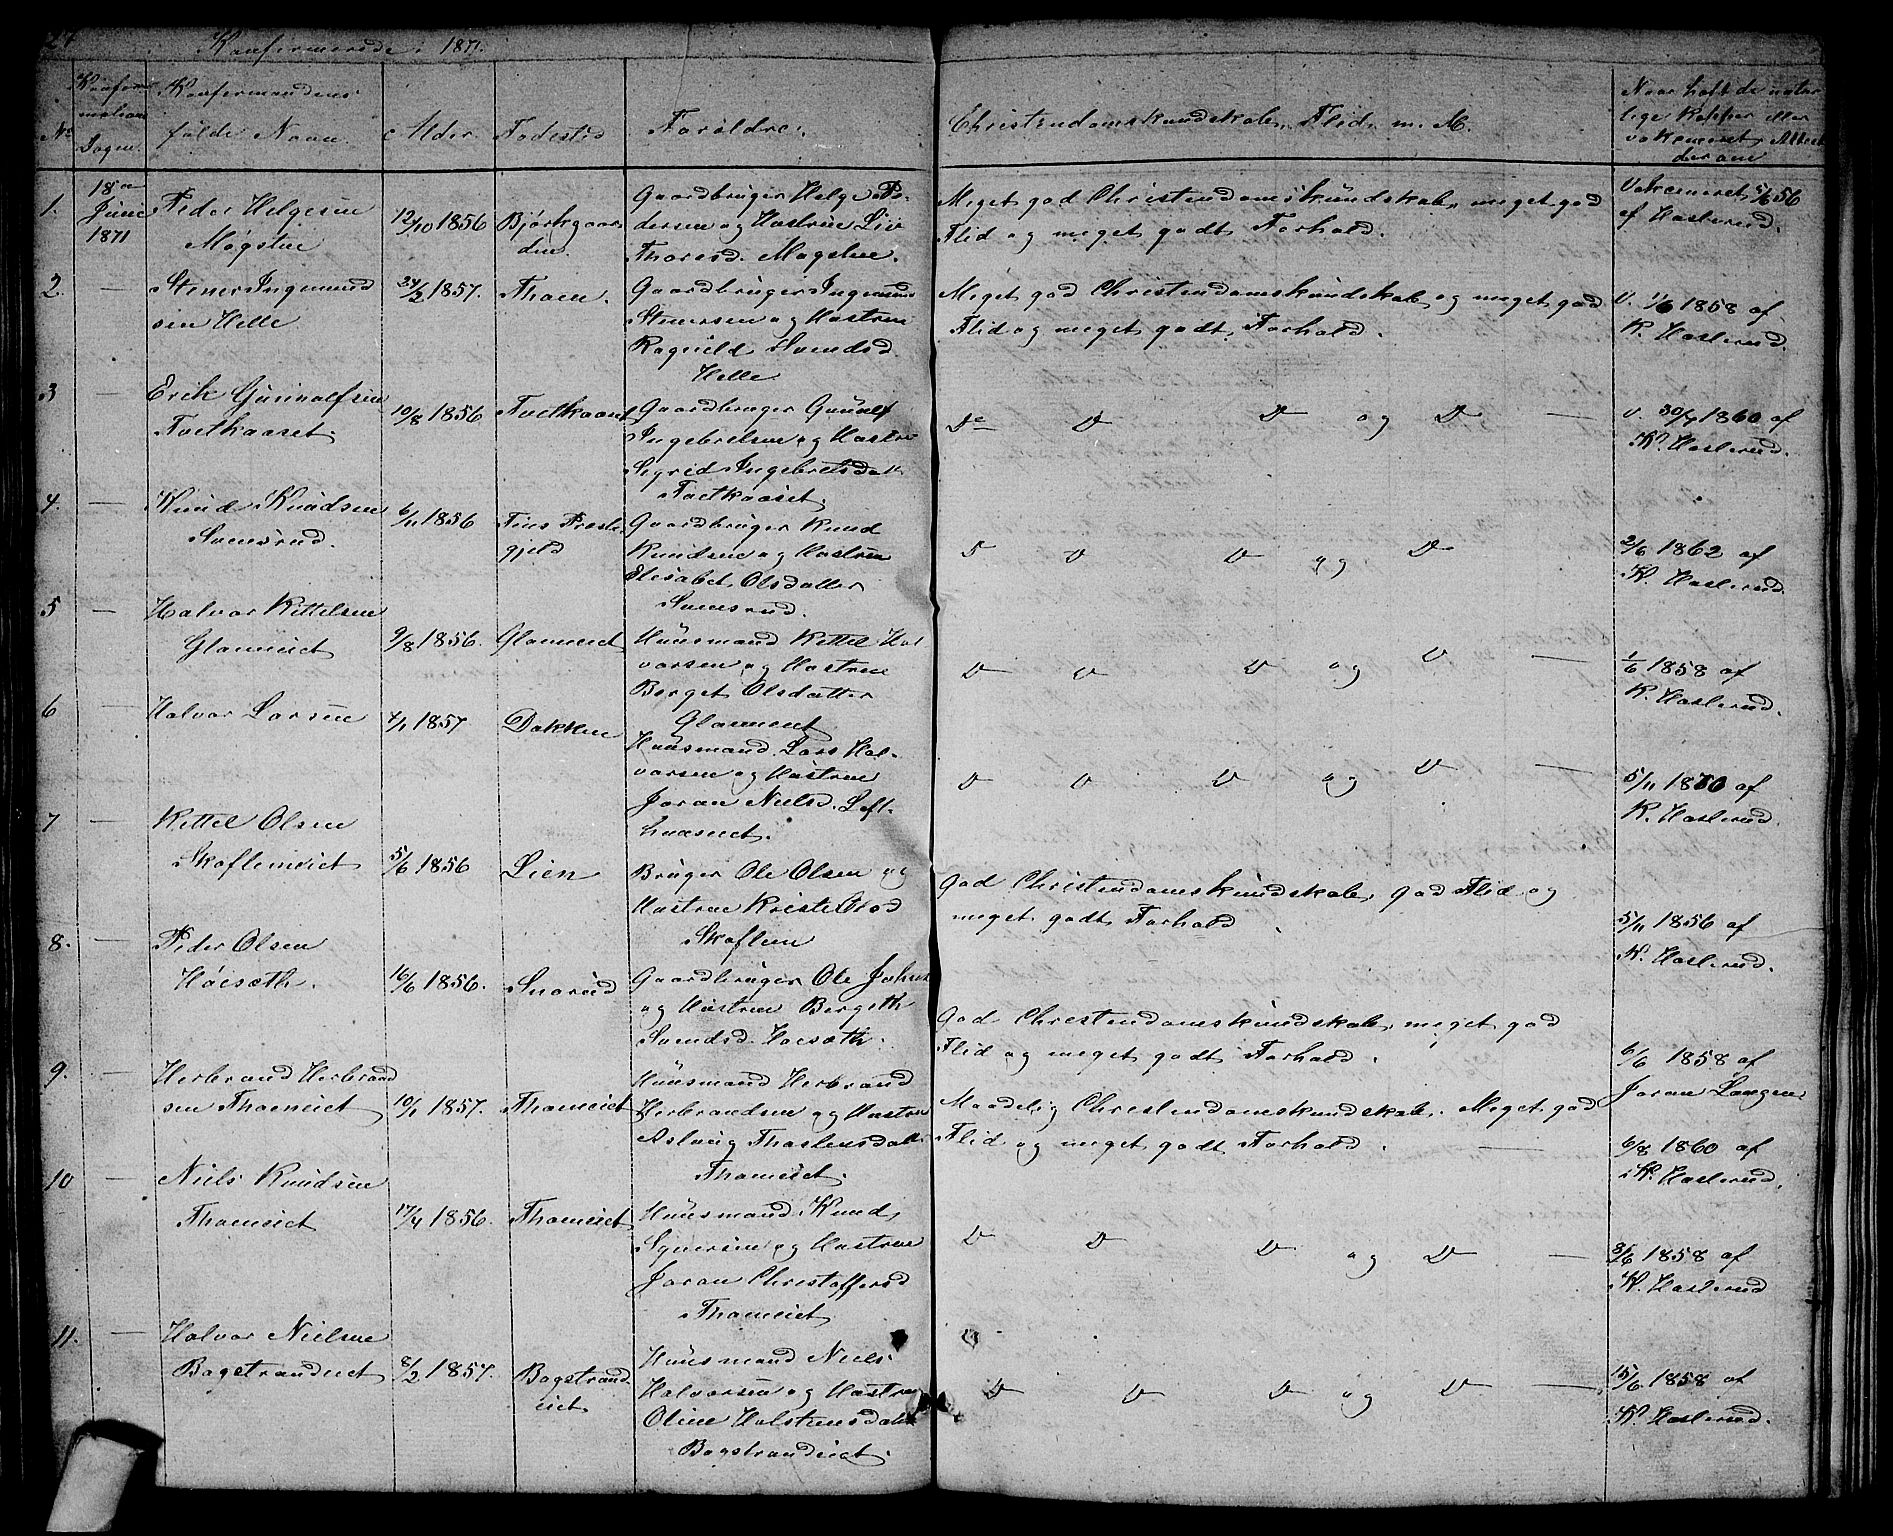 Konfirmerede i 1871.
No
Konfirmations
Dagen
Konfirmandens
fulde Navn.
Alder.
Fødested
Forældre.
Christendomskundskab, Flid, m. M.
Naar havt de natur
lige Kopper eller
vakcineret, Attest
derom
1.
18de
Juni
1871
Peder Helgesen
Møgstue
12/10 1856
Bjørkgaar
den.
Gaardbruger Helge Pe-
dersen og Hustrue Liv
Thoresd. Møgstue.
Meget god Christendomskundskab, meget god
Flid og meget godt Forhold.
Vakcineret 5/6 56
af Haslerud.
2.
Stener Ingemund
sen Helle
24/2 1857.
Thoen.
Gaardbruger Ingemun
Stenersen og Hustrue
Ragnild Svendsd.
Helle
Meget god Christendomskundskab og meget god
Flid og meget godt Forhold.
V. 1/6 1858 af
K. Haslerud.
3
Erik Gunnulfsen
Tvetkaaset.
10/8 1856
Tvetkaas
Gaardbruger Gunulf
Ingebretsen og Hustru
Sigrid Ingebretsdat
Tvetkaaset.
Do D D og D
V. 30/7 1860 af
K. Haslerud.
4.
Knud Knudsen
Svensrud.
6/11 1856
Fins Preste
gjeld
Gaardbruger Knud
Knudsen og Hustrue
Elisabet Olsdatter
Svensrud.
D D D og D
2/6 1862 af
K. Haslerud.
5
Halvor Kittelsen
Glomeiet
9/8 1856.
Glomeiet
Huusmand Kittel Hal
vorsen og Hustrue
Berget Olsdatter
Glomeiet
D D D og D
1/6 1858 af
K. Haslerud.
6
Halvor Larsen
7/1 1857
Dokken
Huusmand Lars Hal-
vorsen og Hustrue
Joran Nielsd. Loft-
huuseiet.
D D D og D
5/11 1870 af
K. Haslerud.
7
Kittel Olsen
Skofleneiet
5/6 1856
Lien
Bruger Ole Olsen og
Hustrue Kristi Olsd
Skoflen
God Christendomskundskab, god Flid og
meget godt Forhold
5/11 1856 af
K. Haslerud.
8.
Peder Olsen
Høesæth.
16/6 1856.
Snorud
Gaardbruger Ole Johns
og Hustrue Bergith
Svendsd. Høesæth.
God Christendomskundskab, meget god
Flid og meget godt Forhold.
6/6 1858 af
Joran Langen
9.
Herbrand Herbrand
sen Thoeneiet
10/1 1857.
Thoeneiet
Huusmand Herbrand
Herbrandsen og Hustru
Aslaug Thostensdatt
Thoeneiet.
Maadelig Christendomskundskab. Meget god
Flid og meget godt Forhold.
6/8 1860 af
K. Haslerud.
10
Niels Knudsen
Thoeneiet
17/4 1856.
Thoeneiet
Huusmand Knud
Synersen og Hustrue
Joran Christoffersd
Thoeneiet
D D D og D
3/6 1858 af
K. Haslerud
11.
Halvor Nielsen
Bogstrandeiet
8/2 1857.
Bogstrand
eiet
Huusmand Niels
Halvorsen og Hustru
Oline Holstensdatt
Bogstrandeiet.
D D D og D
15/6 1858 af
K. Haslerud.